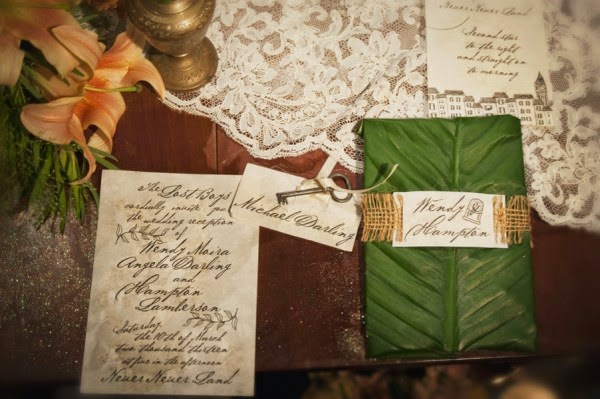 The Lost Boys
cordially invite you
the wedding reception
of
Wendy Moira
Angela Darling
and
Hampton
Lamberson
Saturday
the 10th of March
two thousand thirteen
at five in the afternoon
Never Never Land
Michael Darling
Wendy
Hampton
Never Never Land
Second star
to the right
and straight on
to morning